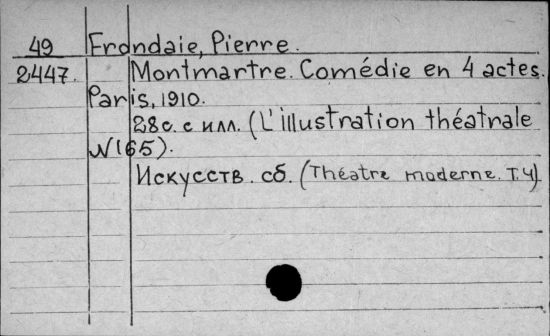 49 Frondaie, Pierre.
2447. Montmartre. Comédie en 4 actes.
Paris, 1910.
28с. с илл. (L'illustration théatrale
N165).
Искусств. сб. (Théatre moderne. T.4)